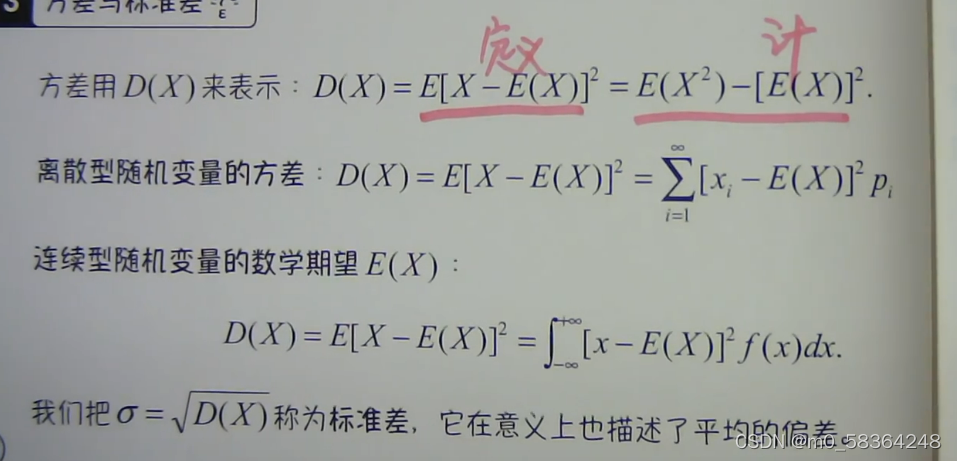 3 方差与标准差
定义 计
方差用 D(X) 来表示：D(X) = E[X − E(X)]² = E(X²) − [E(X)]².
离散型随机变量的方差：D(X) = E[X − E(X)]² = ∑_{i=1}^{∞} [x_i − E(X)]² p_i
连续型随机变量的数学期望 E(X)：
D(X) = E[X − E(X)]² = ∫_{−∞}^{+∞} [x − E(X)]² f(x)dx.
我们把 σ = √D(X) 称为标准差，它在意义上也描述了平均的偏差。
CSDN @m0_58364248